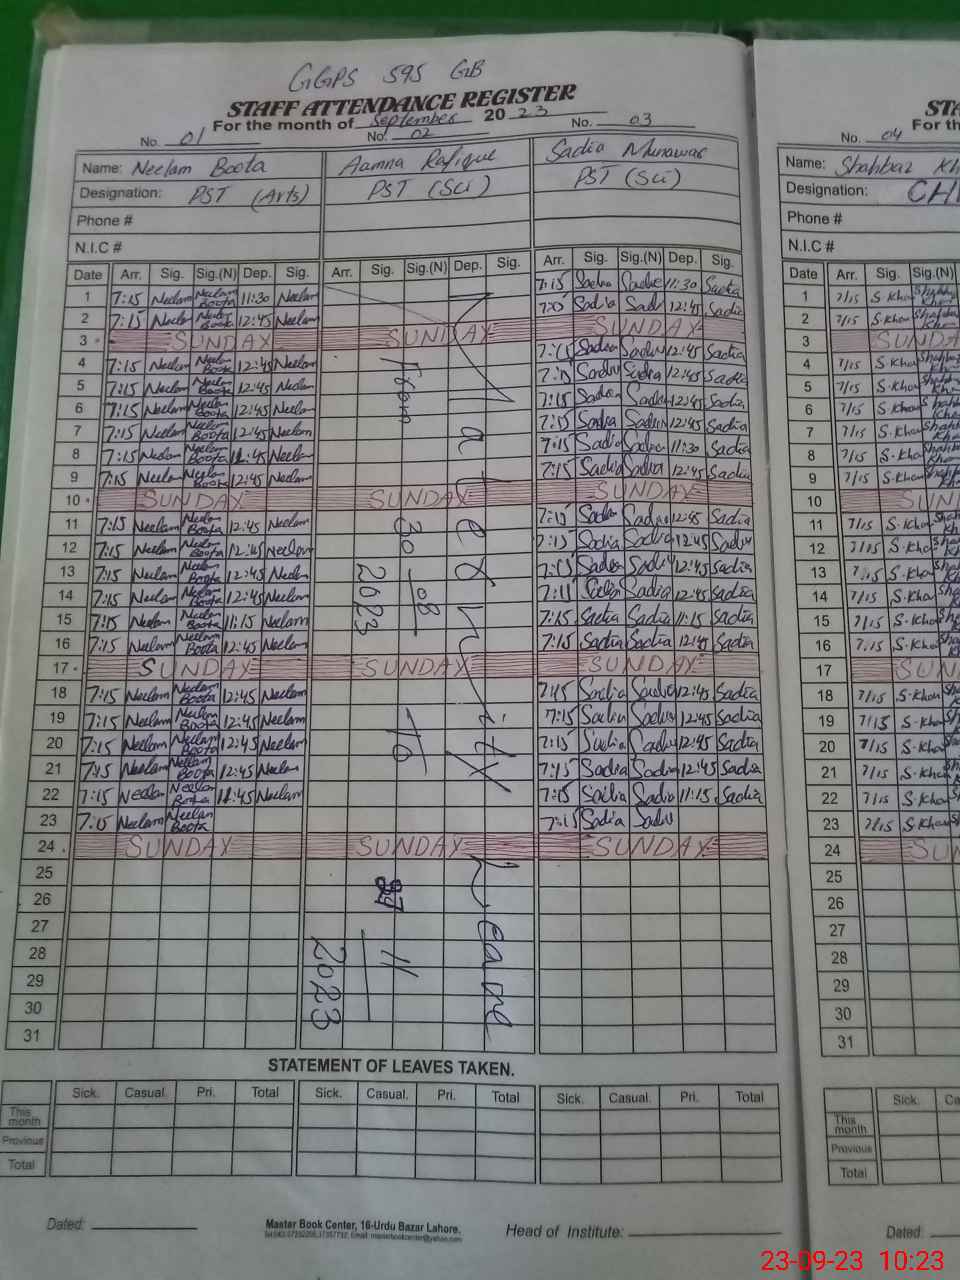 GGPS 595 GB
STAFF ATTENDANCE REGISTER
For the month of September 2023
No. 01 No. 02 No. 03
Name: Neelam Boota Aamna Rafique Sadia Munawar
Designation: PST (Arts) PST (Sci) PST (Sci)
Phone #
N.I.C #
Date Arr. Sig. Sig.(N) Dep. Sig. Arr. Sig. Sig.(N) Dep. Sig. Arr. Sig. Sig.(N) Dep. Sig.
1 7:15 Neelam Neelam Boota 11:30 Neelam 7:15 Sadia Sadia 11:30 Sadia
2 7:15 Neelam Neelam Boota 12:45 Neelam Sadia Sadia 12:45 Sadia
3 SUNDAY SUNDAY SUNDAY
4 7:15 Neelam Neelam Boota 12:45 Neelam 7:15 Sadia Sadia 12:45 Sadia
5 7:15 Neelam Neelam Boota 12:45 Neelam 7:15 Sadia Sadia 12:45 Sadia
6 7:15 Neelam Neelam Boota 12:45 Neelam 7:15 Sadia Sadia 12:45 Sadia
7 7:15 Neelam Neelam Boota 12:45 Neelam 7:15 Sadia Sadia 12:45 Sadia
8 7:15 Neelam Neelam Boota Neelam 7:15 Sadia Sadia 11:30 Sadia
9 7:15 Neelam Neelam Boota 12:45 Neelam 7:15 Sadia Sadia 12:45 Sadia
10 SUNDAY SUNDAY SUNDAY
11 7:15 Neelam Neelam Boota 12:45 Neelam 7:15 Sadia Sadia 12:45 Sadia
12 7:15 Neelam Neelam Boota 12:45 Neelam 7:15 Sadia Sadia 12:45 Sadia
13 7:15 Neelam Neelam Boota 12:45 Neelam 7:15 Sadia Sadia 12:45 Sadia
14 7:15 Neelam Neelam Boota 12:45 Neelam Sadia Sadia 12:45 Sadia
15 7:15 Neelam Neelam Boota 11:15 Neelam 7:15 Sadia Sadia 11:15 Sadia
16 7:15 Neelam Neelam Boota 12:45 Neelam 7:15 Sadia Sadia 12:45 Sadia
17 SUNDAY SUNDAY SUNDAY
18 7:15 Neelam Neelam Boota 12:45 Neelam 7:15 Sadia Sadia 12:45 Sadia
19 7:15 Neelam Neelam Boota 12:45 Neelam 7:15 Sadia Sadia 12:45 Sadia
20 7:15 Neelam Neelam Boota 12:45 Neelam 7:15 Sadia Sadia 12:45 Sadia
21 7:15 Neelam Neelam Boota 12:45 Neelam 7:15 Sadia Sadia 12:45 Sadia
22 7:15 Neelam Neelam Boota Neelam 7:15 Sadia Sadia 11:15 Sadia
23 7:15 Neelam Neelam Boota 7:15 Sadia Sadia
24 SUNDAY SUNDAY SUNDAY
25
26
27
28
29
30
31
Maternity Leave
From 30-08-2023 To 11 2023
STATEMENT OF LEAVES TAKEN.
Sick. Casual. Pri. Total Sick. Casual. Pri. Total Sick. Casual. Pri. Total
This month
Previous
Total
Dated:
Master Book Center, 16-Urdu Bazar Lahore.
Head of Institute:
STA
For th
No. 04
Name: Shahbaz Kh
Designation: CH
Phone #
N.I.C #
Date Arr. Sig. Sig.(N)
1 7/15 S.Khan
2 7/15 S.Khan
3 SUNDA
4 7/15 S.Khan
5 7/15 S.Khan
6 7/15 S.Khan
7 7/15 S.Khan
8 7/15 S.Khan
9 7/15 S.Khan
10 SUN
11 7/15 S.Khan
12 7/15 S.Kha
13 7/15 S.Khan
14 7/15 S.Kha
15 7/15 S.Kha
16 7.15 S.Kha
17 SUN
18 7/15 S.Kha
19 7/15 S.Kha
20 7/15 S.Kha
21 7/15 S.Kha
22 7/15 S.Kha
23 7/15 S.Kha
24 SUN
25
26
27
28
29
30
31
Sick. Ca
This month
Previous
Total
Dated:
23-09-23 10:23